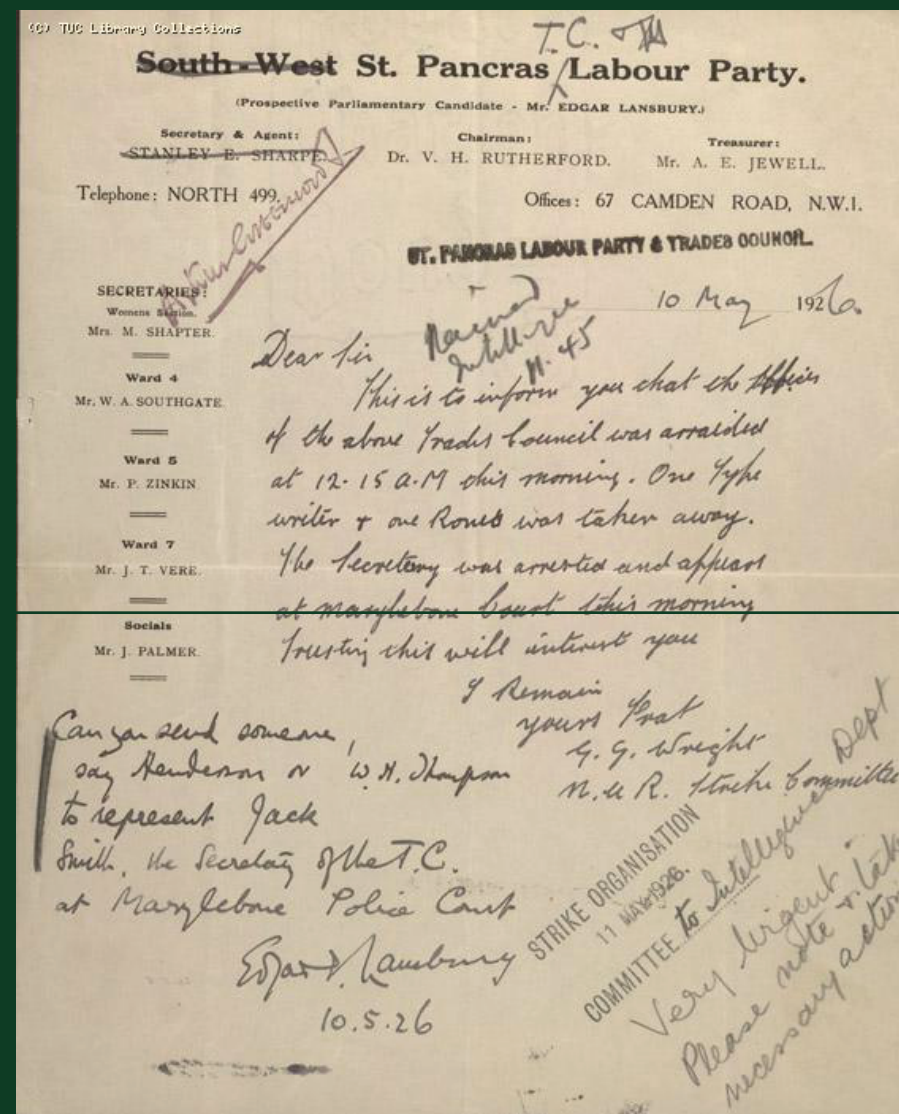 (C) TUC Library Collections
T.C.
South-West St. Pancras Labour Party.
(Prospective Parliamentary Candidate - Mr. EDGAR LANSBURY.)
Secretary & Agent:
STANLEY E. SHARPE.
Chairman:
Dr. V. H. RUTHERFORD.
Treasurer:
Mr. A. E. JEWELL.
Telephone: NORTH 499.
Offices: 67 CAMDEN ROAD, N.W.1.
ST. PANCRAS LABOUR PARTY & TRADES COUNCIL.
10 May 1926.
Received
Intelligence
11.45
SECRETARIES:
Womens Section.
Mrs. M. SHAPTER.
Ward 4
Mr. W. A. SOUTHGATE.
Ward 5
Mr. P. ZINKIN
Ward 7
Mr. J. T. VERE.
Socials
Mr. J. PALMER.
Dear Sir
This is to inform you that the Offices
of the above Trades Council was arraided
at 12.15 A.M this morning. One Type
writer & one Roneo was taken away.
The Secretary was arrested and appears
at Marylebone Court this morning
Trusting this will interest you
I Remain
yours Frat
G. G. Wright
N.U.R. Strike Committee
Can you send someone,
say Henderson or W.H. Thompson
to represent Jack
Smith, the Secretary of the T.C.
at Marylebone Police Court
Edgar Lansbury
10.5.26
STRIKE ORGANISATION
11 MAY 1926.
COMMITTEE
to Intelligence Dept
Very Urgent.
Please note & take
necessary action